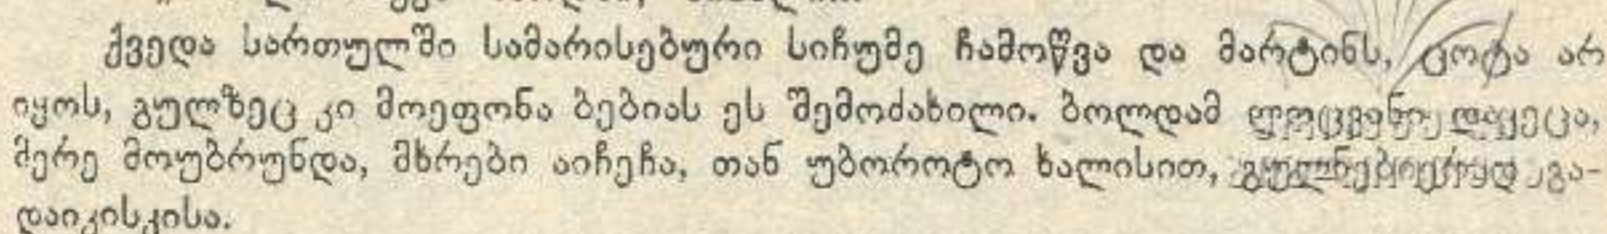 ქვედა სართულში სამარისებური სიჩუმე ჩამოწვა და მარტინს, ცოტა არ
იყოს, გულზეც კი მოეფონა ბებიას ეს შემოძახილი. ბოლდამ ლოცვანი დაკეცა,
მერე მოუბრუნდა, მხრები აიჩეჩა, თან უბოროტო ხალისით, გულნებიერად გა-
დაიკისკისა.